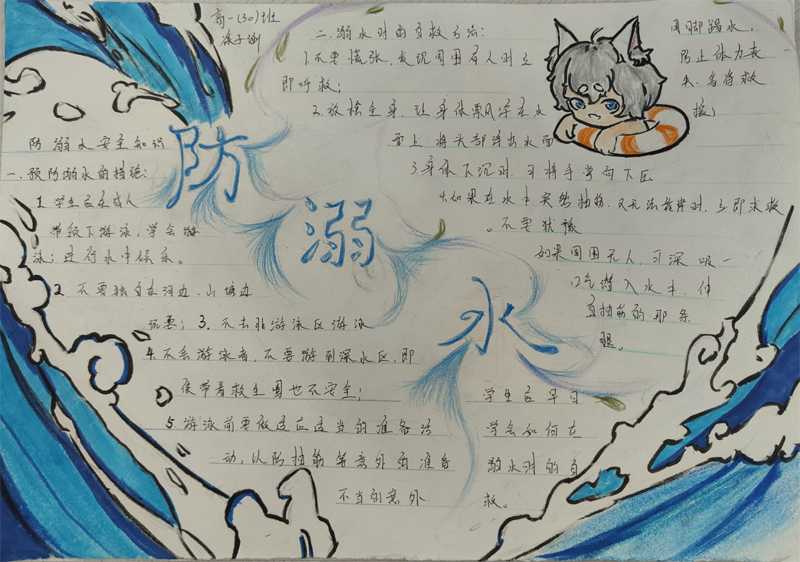 高一(30)班
防溺水
防溺水安全知识
一、预防溺水的措施:
1. 学生应在成人
带领下游泳,学会游
泳;进行水中娱乐。
2. 不要独自在河边、山塘边
玩耍; 3. 不去非游泳区游泳
4. 不会游泳者,不要游到深水区,即
使带着救生圈也不安全;
5. 游泳前要做适应适当的准备活
动,以防抽筋等意外的准备
不当的意外
二、溺水时的自救方法:
1. 不要慌张,发现周围有人时立
即呼救;
2. 放松全身,让身体飘浮在水
面上,将头部浮出水面
用脚踢水,
防止体力丧
失,等待救
援;
3. 身体下沉时,可将手掌向下压
4. 如果在水中突然抽筋,又无法靠岸时,立即求救
。不要犹豫
如果周围无人,可深吸一
口气潜入水中,伸
直抽筋的那条
腿。
学生应早日
学会如何在
溺水时的自
救。